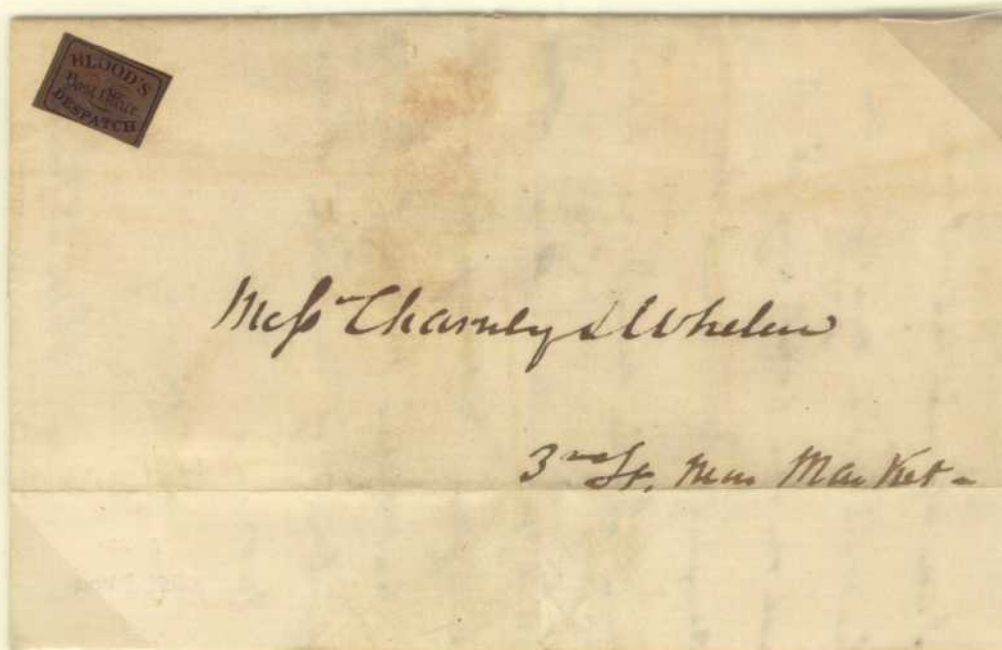 BLOOD'S
Post Office
DESPATCH
Mess Charnley & Whelen
3rd St. near Market